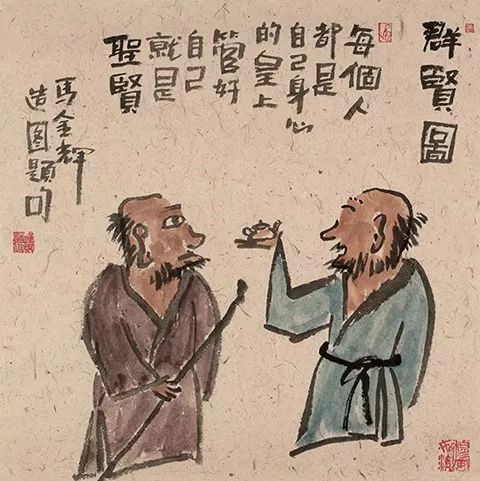 群賢圖
每個人
都是
自己身心
的皇上
管好
自己
就是
聖賢
马金輝
造图題句